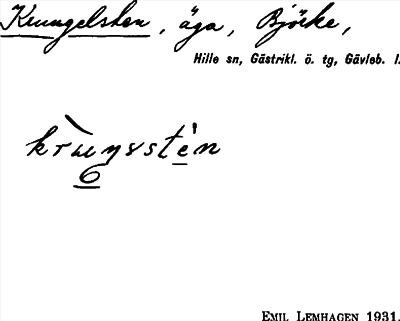 Krungelsten, äga, Björke,
Hille sn, Gästrikl. ö. tg, Gävleb. l.
6
EMIL LEMHAGEN 1931.